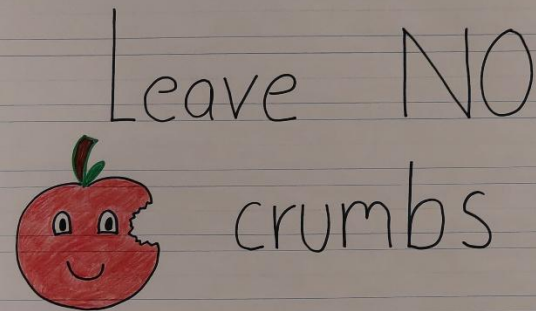 Leave NO
crumbs